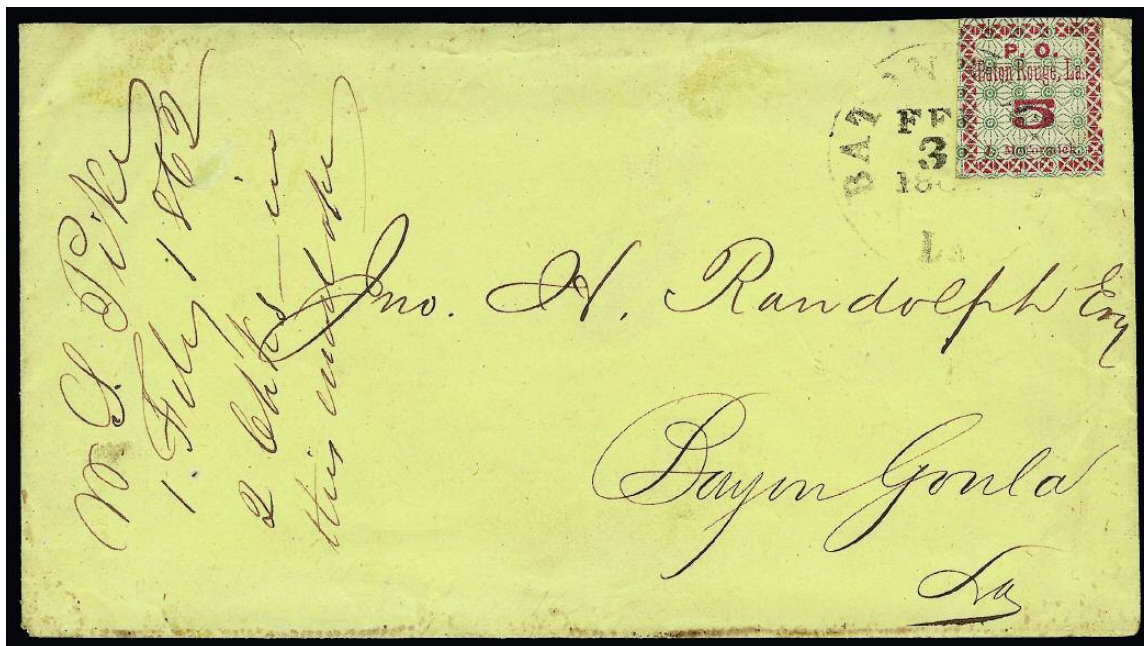 P. O.
Baton Rouge, La.
5
J. McCormick.
BAT
FE
3
186
La
W S. Pike
1 Feby 1862
2 Chks in
this envelope
Jno. H. Randolph Esq
Bayou Goula
La